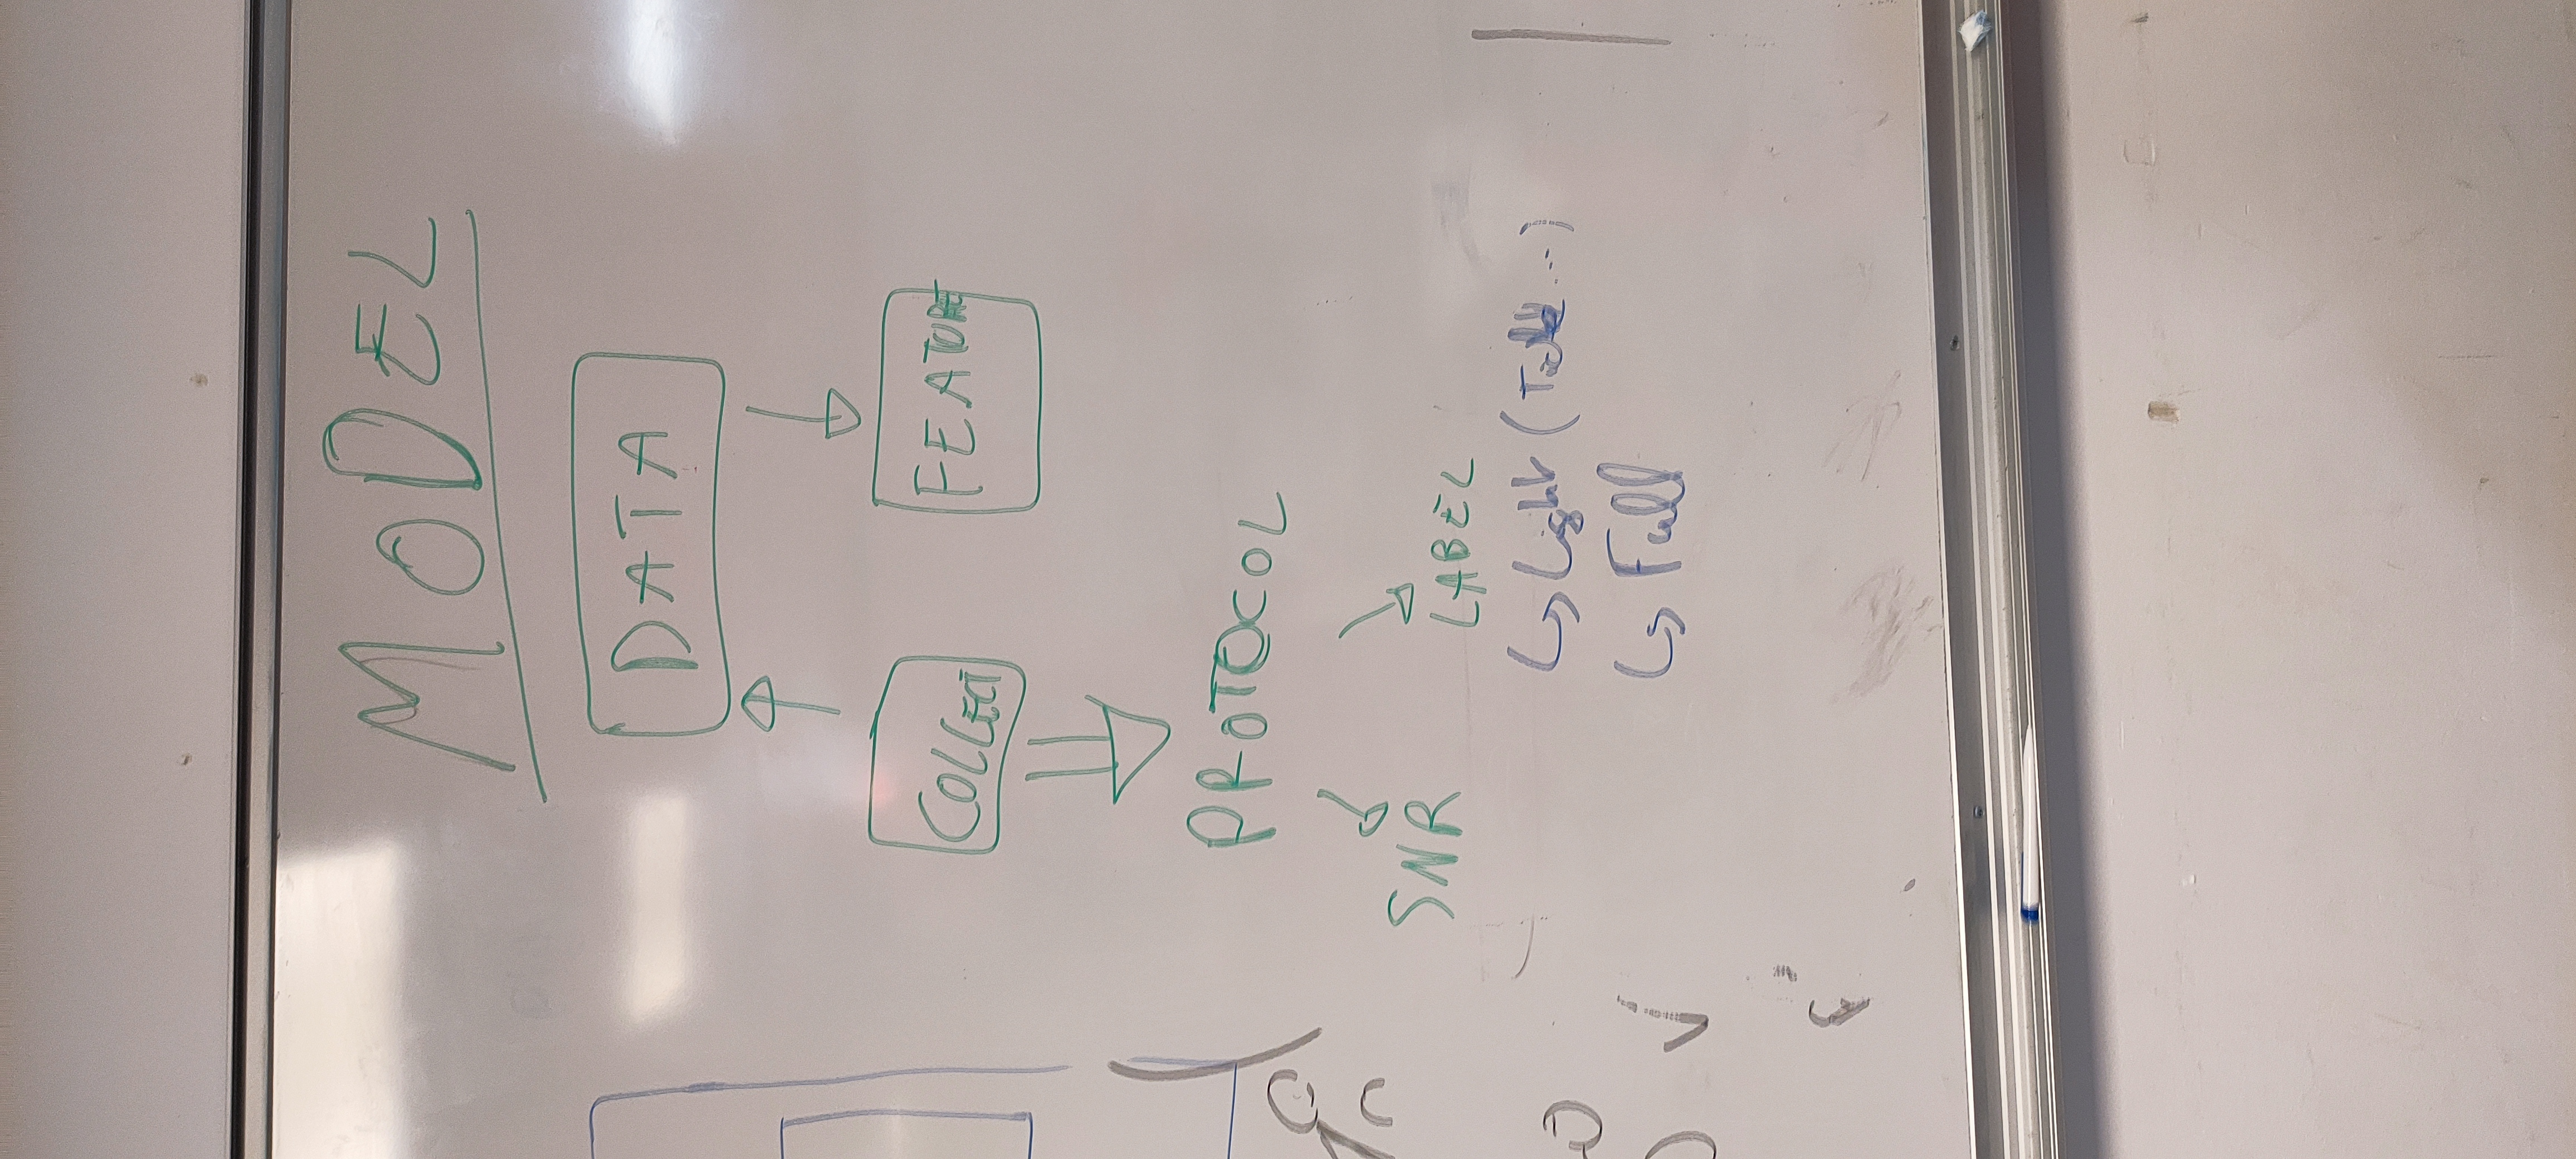 MODEL
DATA
COLLECT FEATURE
PROTOCOL
SNR
LABEL
Light (
Full